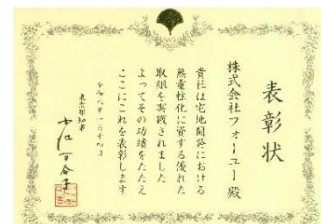 表彰状
株式会社フォーユー 殿
貴社は宅地開発における
無電柱化に資する優れた
取組を実践されました
よってその功績をたたえ
ここにこれを表彰します
東京都知事
小池百合子